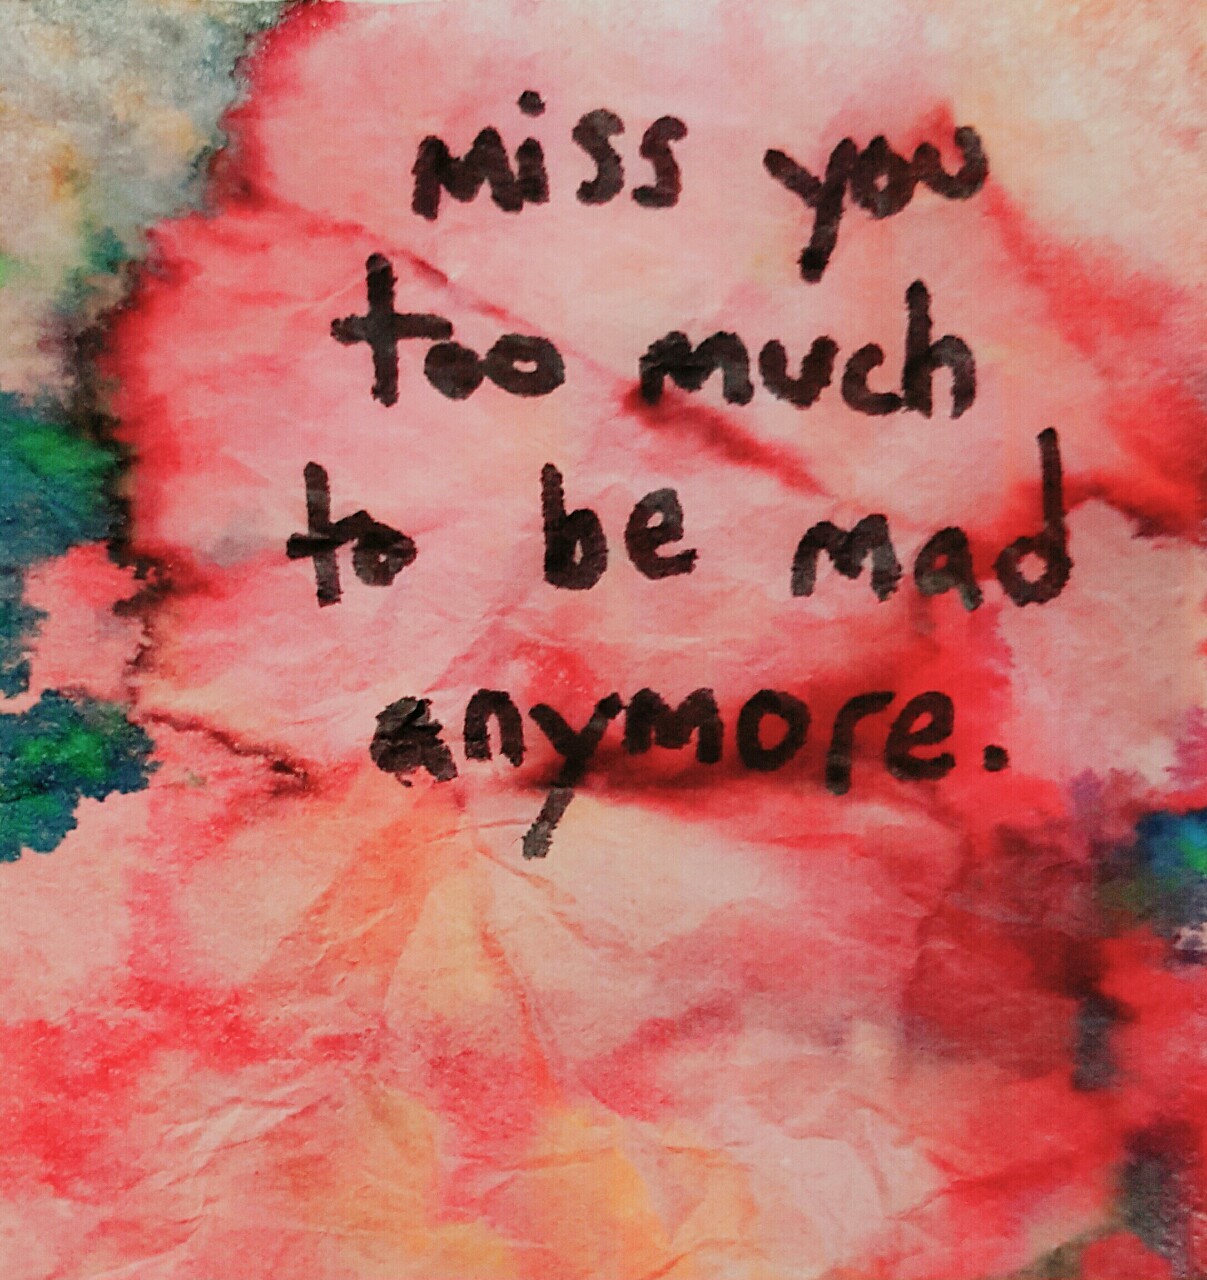 miss you
too much
to be mad
anymore.